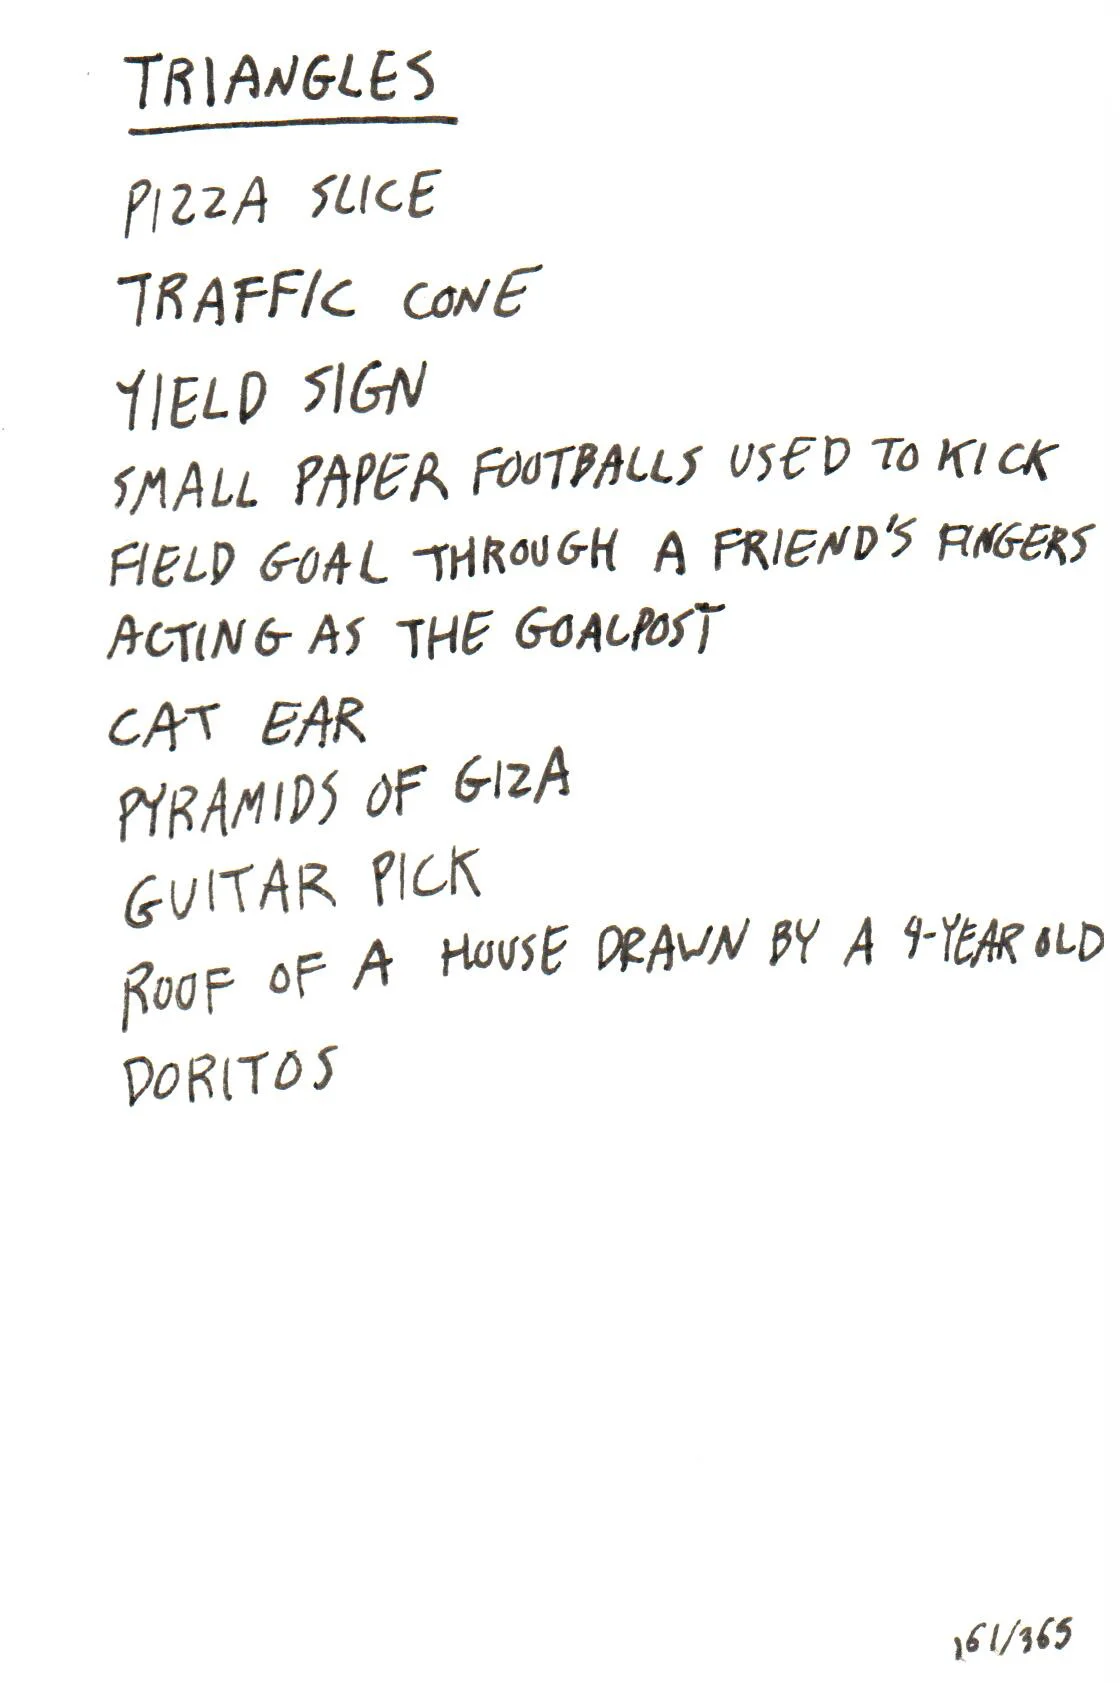 TRIANGLES
PIZZA SLICE
TRAFFIC CONE
YIELD SIGN
SMALL PAPER FOOTBALLS USED TO KICK
FIELD GOAL THROUGH A FRIEND'S FINGERS
ACTING AS THE GOALPOST
CAT EAR
PYRAMIDS OF GIZA
GUITAR PICK
ROOF OF A HOUSE DRAWN BY A 4-YEAR OLD
DORITOS
161/365